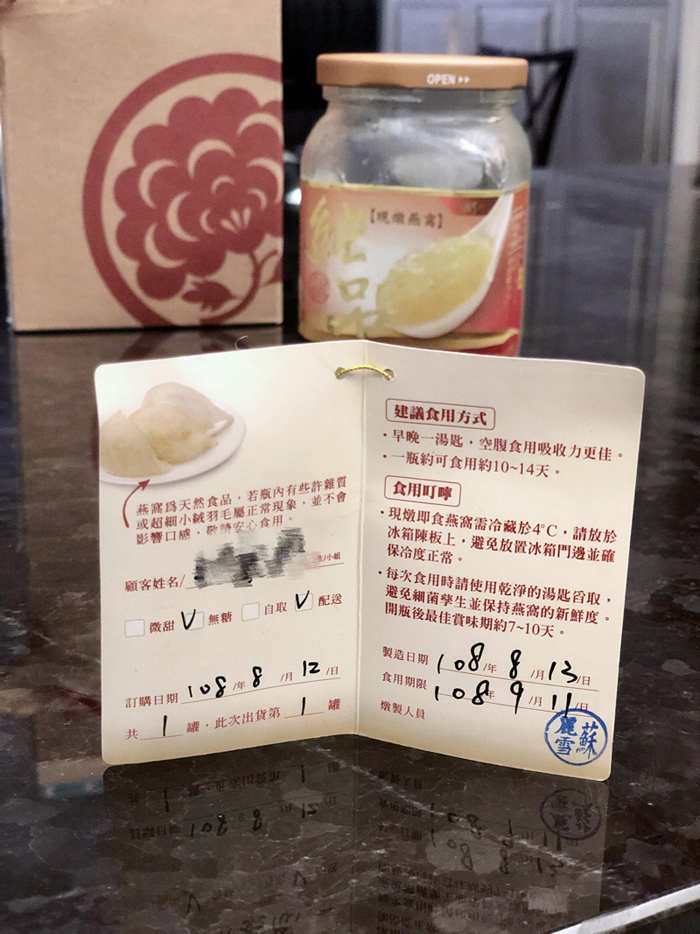 OPEN ▸▸
【現燉燕窩】
純品
燕窩為天然食品，若瓶內有些許雜質
或超細小絨羽毛屬正常現象，並不會
影響口感，敬請安心食用。
顧客姓名/
生/小姐
微甜 V 無糖 自取 V 配送
訂購日期 108/年 8 /月 12 /日
共 1 罐，此次出貨第 1 罐
建議食用方式
・早晚一湯匙，空腹食用吸收力更佳。
・一瓶約可食用約10~14天。
食用叮嚀
・現燉即食燕窩需冷藏於4°C，請放於
冰箱陳板上，避免放置冰箱門邊並確
保冷度正常。
・每次食用時請使用乾淨的湯匙舀取，
避免細菌孳生並保持燕窩的新鮮度。
開瓶後最佳賞味期約7~10天。
製造日期 108/年 8 /月 13 /日
食用期限 108/年 9 /月 11 /日
燉製人員
蘇麗雪